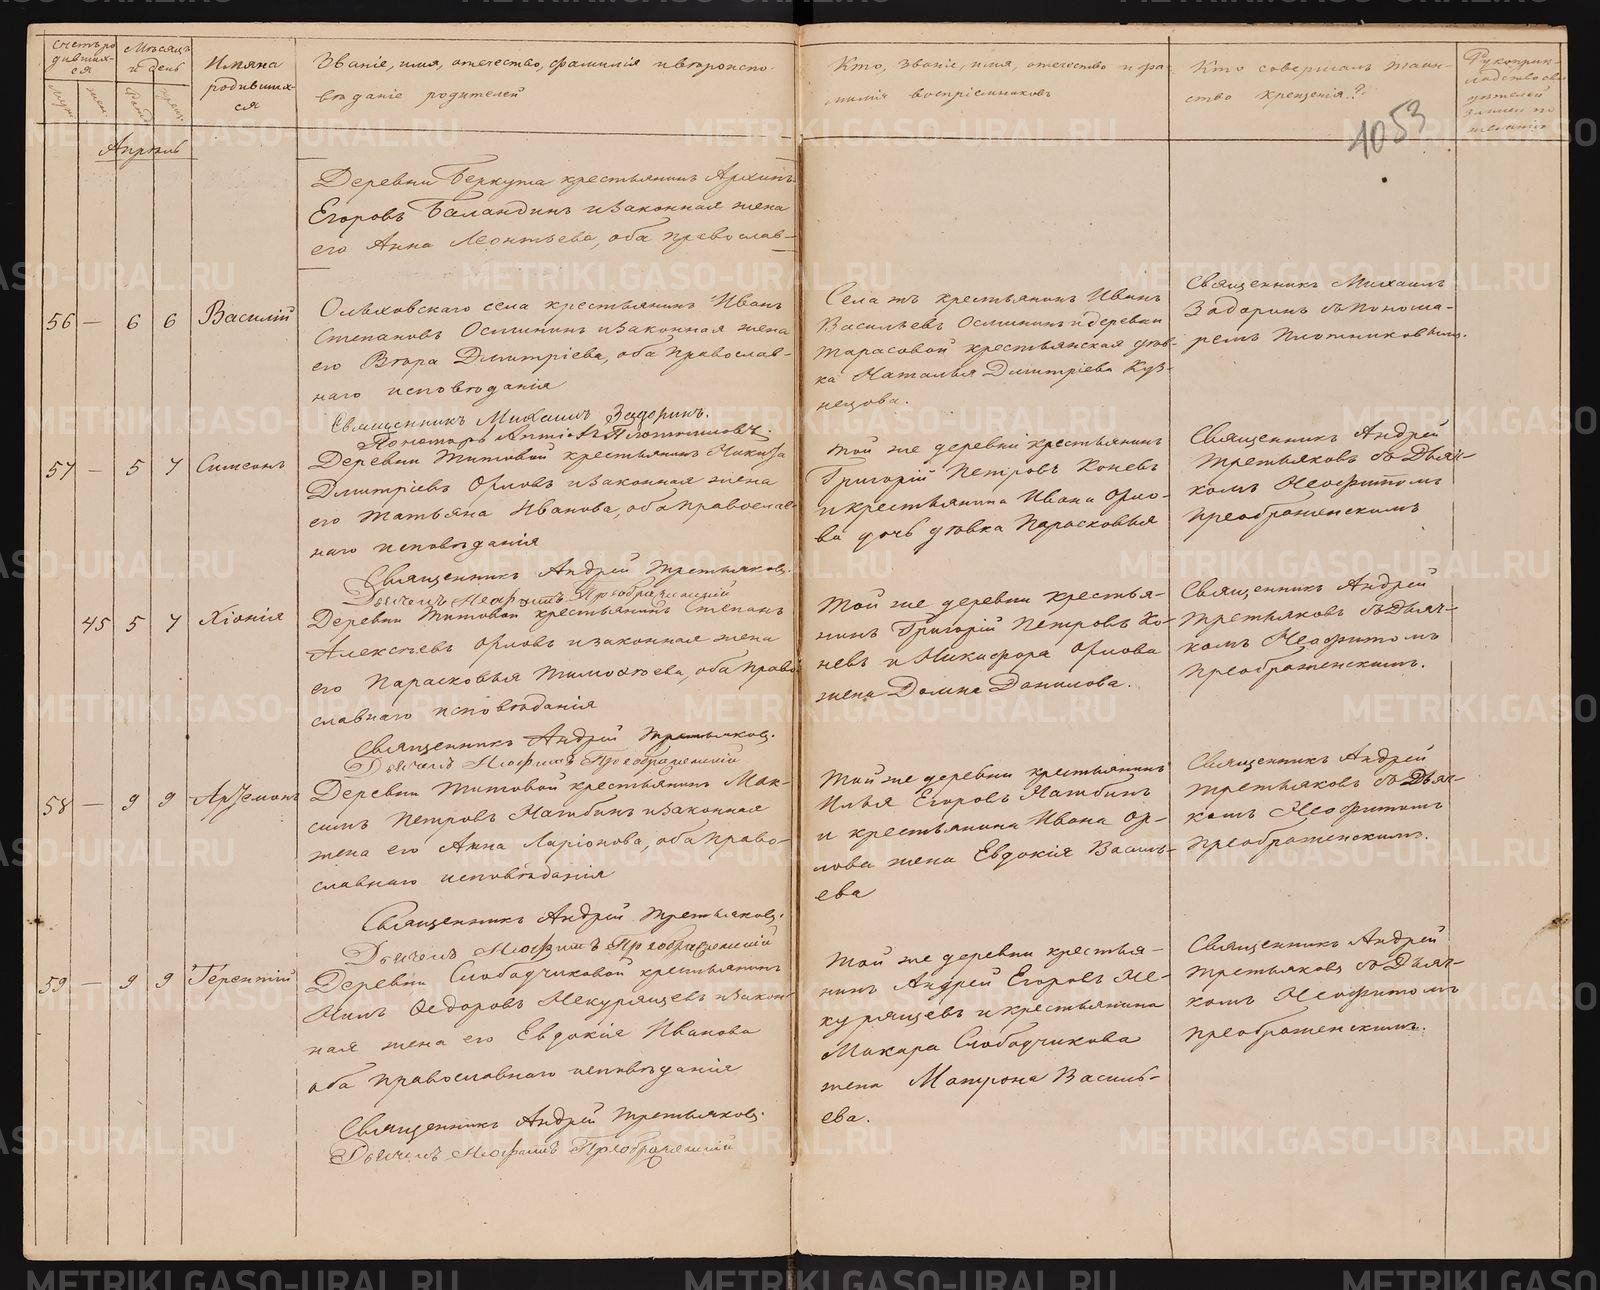 Счетъ ро
дивших-
ся
Мѣсяцъ
и день
Имяна
родивших-
ся
Званіе, имя, отечество, фамилія и вѣроиспо-
вѣданіе родителей
Кто, званіе, имя, отечество и фа-
милія воспріемниковъ
Кто совершалъ таин-
ство крещенія?
Рукоприк-
ладство сви-
дѣтелей
записи по
желанію
1053
Апрѣль
Деревни Беркута крестьянинъ Архипъ
Егоровъ Баландинъ и законная жена
его Анна Леонтьева, оба православ-
56 — 6 6 Василій
Ольховскаго села крестьянинъ Иванъ
Степановъ Осминин и законная жена
его Вѣра Димитріева, оба православ-
наго исповѣданія
Священникъ Михаилъ Задоринъ.
Пономарь Плотниковъ.
Села тъ крестьянинъ Иванъ
Васильевъ Осмининъ и деревни
Тарасовой крестьянская дѣв-
ка Наталья Димитріева Куз-
нецова.
Священникъ Михаилъ
Задоринъ съ Понома-
ремъ Плотниковымъ.
57 — 5 7 Симеонъ
Деревни Титовой крестьянинъ Никита
Димитріевъ Орловъ и законная жена
его Татьяна Иванова, оба православ-
наго исповѣданія
Священникъ Андрей Третьяковъ.
Дьячекъ Неофитъ Преображенскій
Той же деревни крестьянинъ
Григорій Петровъ Коневъ
и крестьянина Ивана Орло-
ва дочь дѣвка Парасковья
Священникъ Андрей
Третьяковъ съ Дьяч-
комъ Неофитомъ
Преображенскимъ
45 5 7 Хіонія
Деревни Титовой крестьянинъ Степанъ
Алексѣевъ Орловъ и законная жена
его Парасковья Тимоѳеева, оба право
славнаго исповѣданія
Священникъ Андрей Третьяковъ.
Дьячекъ Неофитъ Преображенскій
Той же деревни крестья-
нинъ Григорій Петровъ Ко-
невъ и Никифора Орлова
жена Домна Данилова.
Священникъ Андрей
Третьяковъ съ Дьяч-
комъ Неофитомъ
Преображенскимъ.
58 — 9 9 Артемонъ
Деревни Титовой крестьянинъ Мак-
симъ Петровъ и законная
жена его Анна Ларіонова, оба право-
славнаго исповѣданія
Священникъ Андрей Третьяковъ.
Дьячекъ Неофитъ Преображенскій
Той же деревни крестьянинъ
Илья Егоровъ
и крестьянина Ивана Ор-
лова жена Евдокія Василь-
ева
Священникъ Андрей
Третьяковъ съ Дьяч-
комъ Неофитомъ
Преображенскимъ.
59 — 9 9 Терентій
Деревни Слободчиковой крестьянинъ
Нилъ Ѳедоровъ Некурящевъ и закон-
ная жена его Евдокія Иванова
оба православнаго исповѣданія
Священникъ Андрей Третьяковъ.
Дьячекъ Неофитъ Преображенскій
Той же деревни крестья-
нинъ Андрей Егоровъ Не-
курящевъ и крестьянина
Макара Слободчикова
жена Матрона Василь-
ева.
Священникъ Андрей
Третьяковъ съ Дьяч-
комъ Неофитомъ
Преображенскимъ.
METRIKI.GASO-URAL.RU